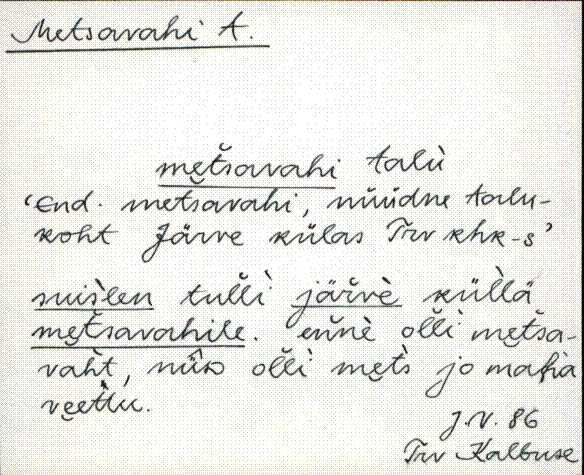 Metsavahi A.
mẹt̆savahi talù
'End. metsavahi, nüüdne talu-
koht Järve külas Trv khk-s'
suis̀len tul̆lì jär̆vè kül̀lä
mẹt̆savahile. en̆nè ol̆lì mẹt̆sa-
vah̀t, nüüd ol̆lì mẹt̀s jo mah̆à
vẹettu.
J.V. 86
Trv Kalbuse